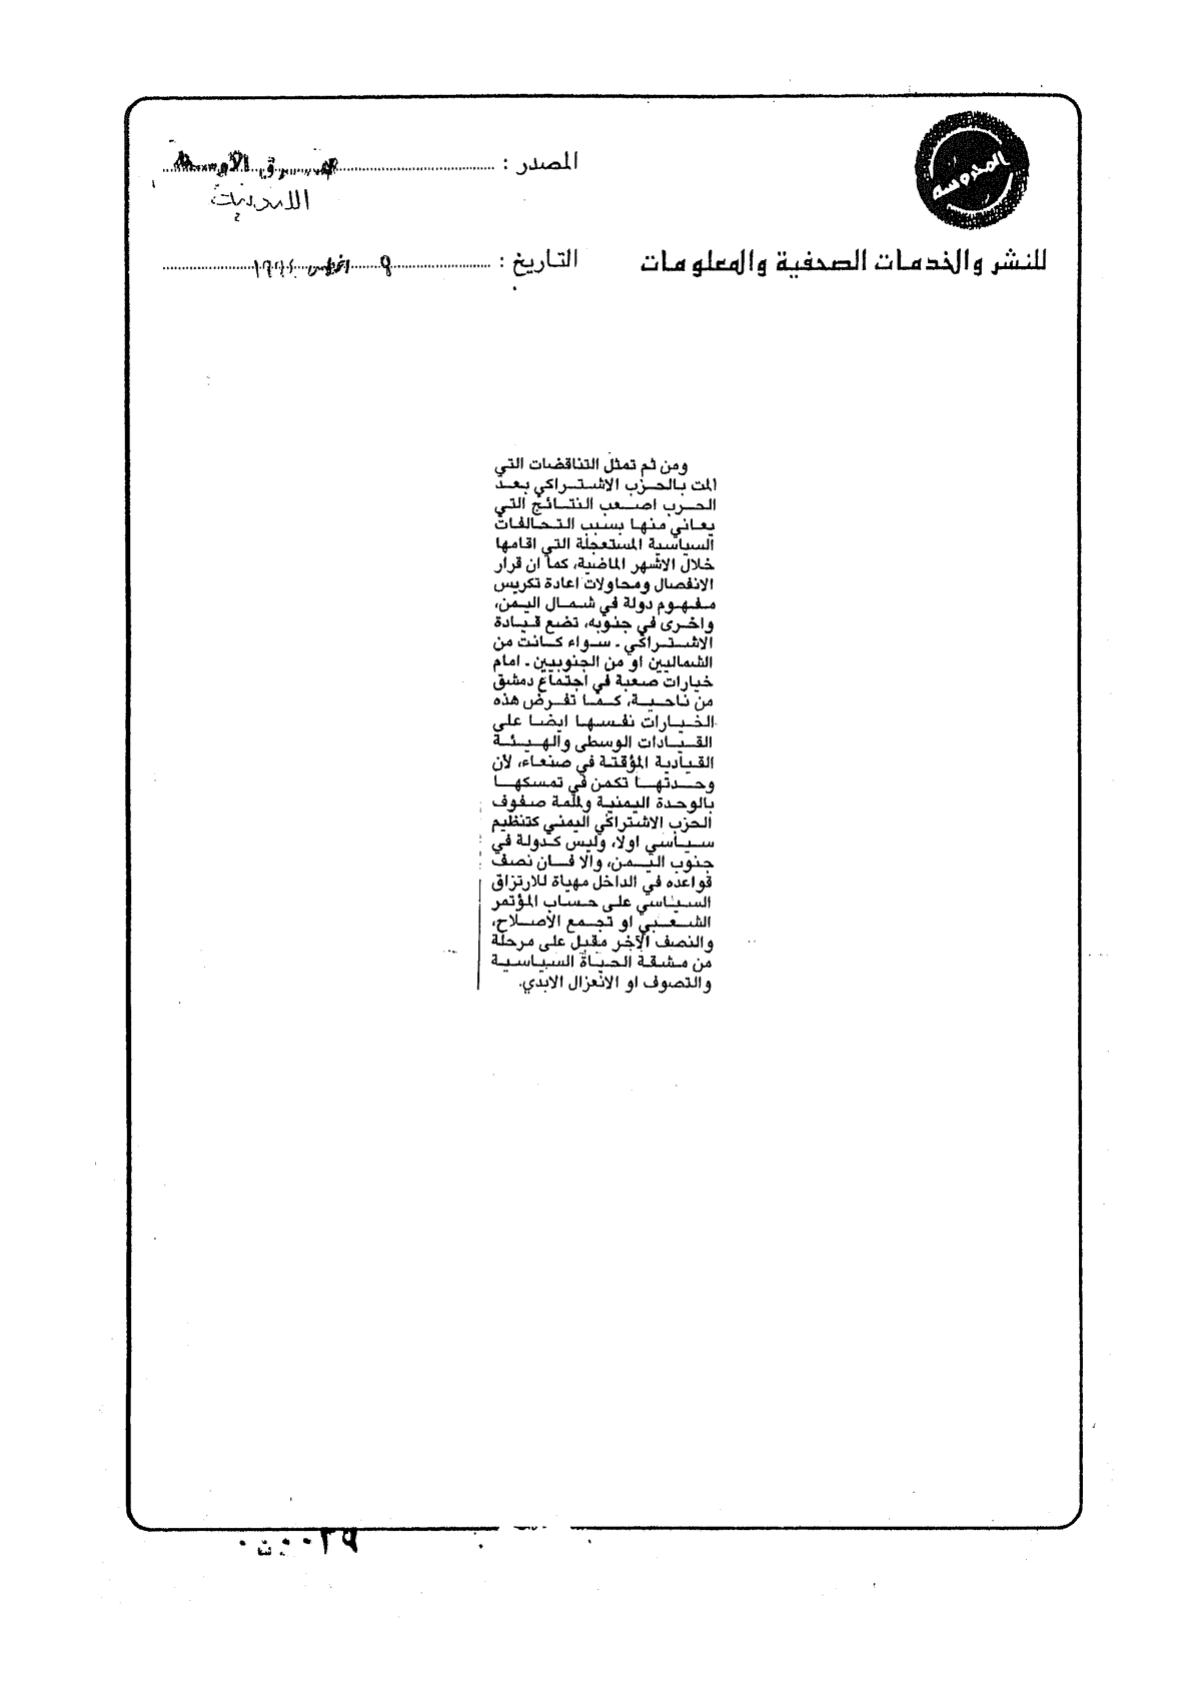 المحروسه
المصدر : الشرق الأوسط
اللندنية
للنشر والخدمات الصحفية والمعلومات
التاريخ : ٩ اغسطس ١٩٩٤
ومن ثم تمثل التناقضات التي
المت بالحزب الاشتراكي بعد
الحرب اصعب النتائج التي
يعاني منها بسبب التحالفات
السياسية المستعجلة التي اقامها
خلال الاشهر الماضية، كما ان قرار
الانفصال ومحاولات اعادة تكريس
مفهوم دولة في شمال اليمن،
واخرى في جنوبه، تضع قيادة
الاشتراكي ـ سواء كانت من
الشماليين او من الجنوبيين ـ امام
خيارات صعبة في اجتماع دمشق
من ناحية، كما تفرض هذه
الخيارات نفسها ايضا على
القيادات الوسطى والهيئة
القيادية المؤقتة في صنعاء، لأن
وحدتها تكمن في تمسكها
بالوحدة اليمنية ولملمة صفوف
الحزب الاشتراكي اليمني كتنظيم
سياسي اولا، وليس كدولة في
جنوب اليمن، والا فان نصف
قواعده في الداخل مهياة للارتزاق
السياسي على حساب المؤتمر
الشعبي او تجمع الإصلاح،
والنصف الآخر مقبل على مرحلة
من مشقة الحياة السياسية
والتصوف او الانعزال الابدي.